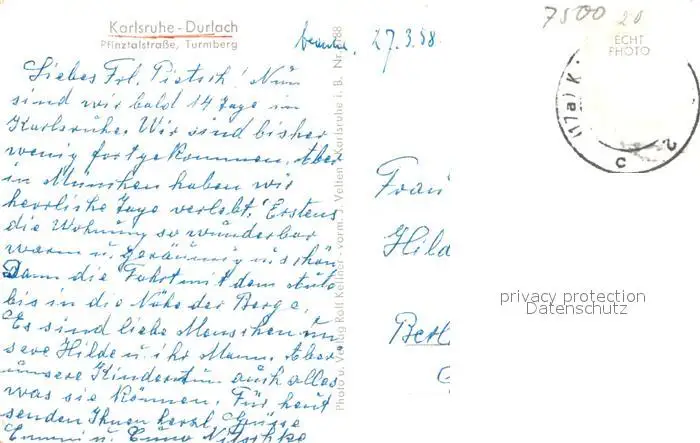 Karlsruhe-Durlach
Pfinztalstraße, Turmberg
27.3.58.
Liebes Frl. Pietsch! Nun
sind wir bald 14 Tage in
Karlsruhe. Wir sind bisher
wenig fortgekommen. Aber
in München haben wir
herrliche Tage verlebt. Erstens
die Wohnung so wunderbar
warm u. geräumig u. schön
Dann die Fahrt mit dem Auto
bis in die Nähe der Berge.
Es sind liebe Menschen un-
sere Hilde u. ihr Mann. Aber
unsere Kinder tun auch alles
was sie können. Für heut
senden Ihnen herzl. Grüsse
Emmi u. Nitschke
Photo u. Verlag Rolf Kellner - vorm. J. Velten Karlsruhe i. B. Nr.
7500
20
ECHT
PHOTO
(17a) K
Frau
Hild
Berl
privacy protection
Datenschutz